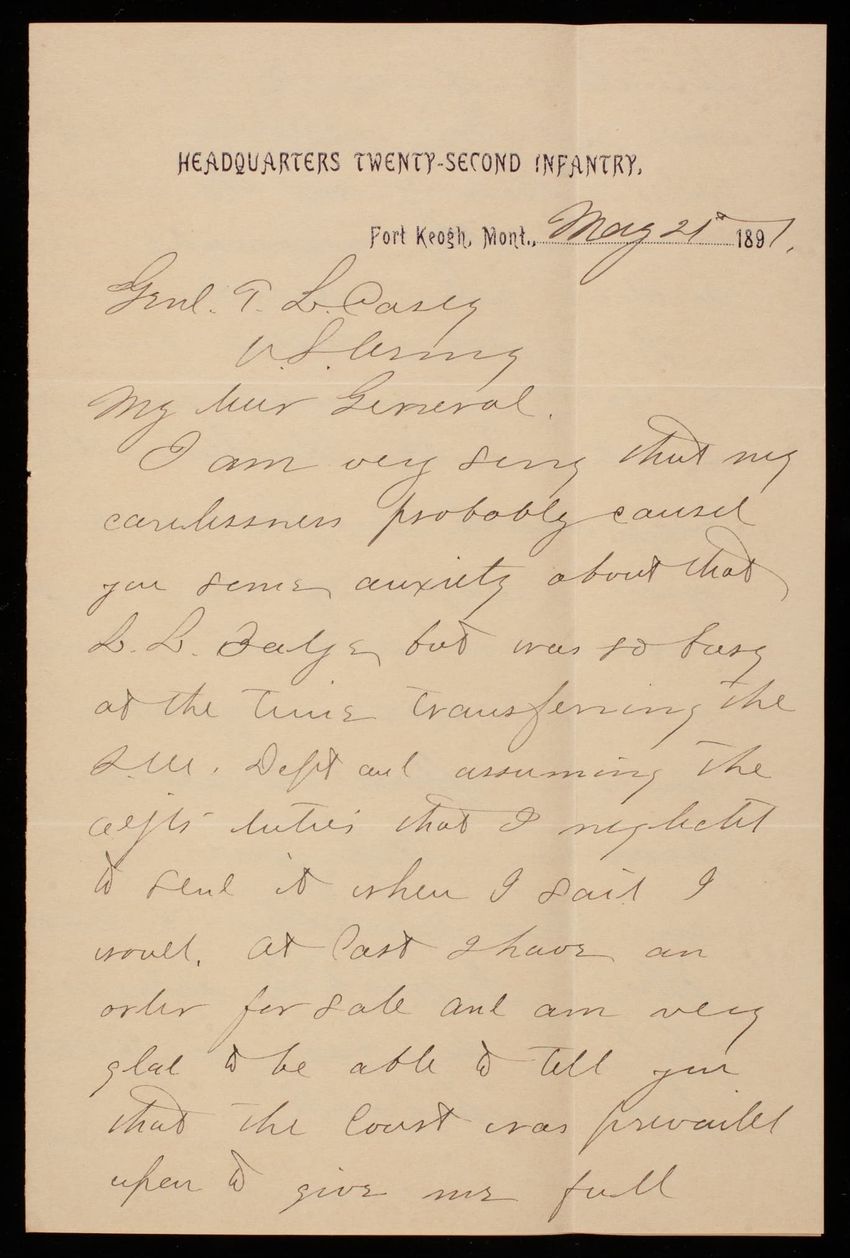 HEADQUARTERS TWENTY-SECOND INFANTRY,
Fort Keogh, Mont., May 21st 1891.
Genl. T. L. Casey
U.S. Army
My dear General.
I am very sorry that my
carelessness probably caused
you some anxiety about that
L. L. but was so busy
at the time transferring the
Dept and assuming the
duties that I neglected
to send it when I said I
would. At last I have an
order for sale and am very
glad to be able to tell you
that the Court was prevailed
upon to give me full